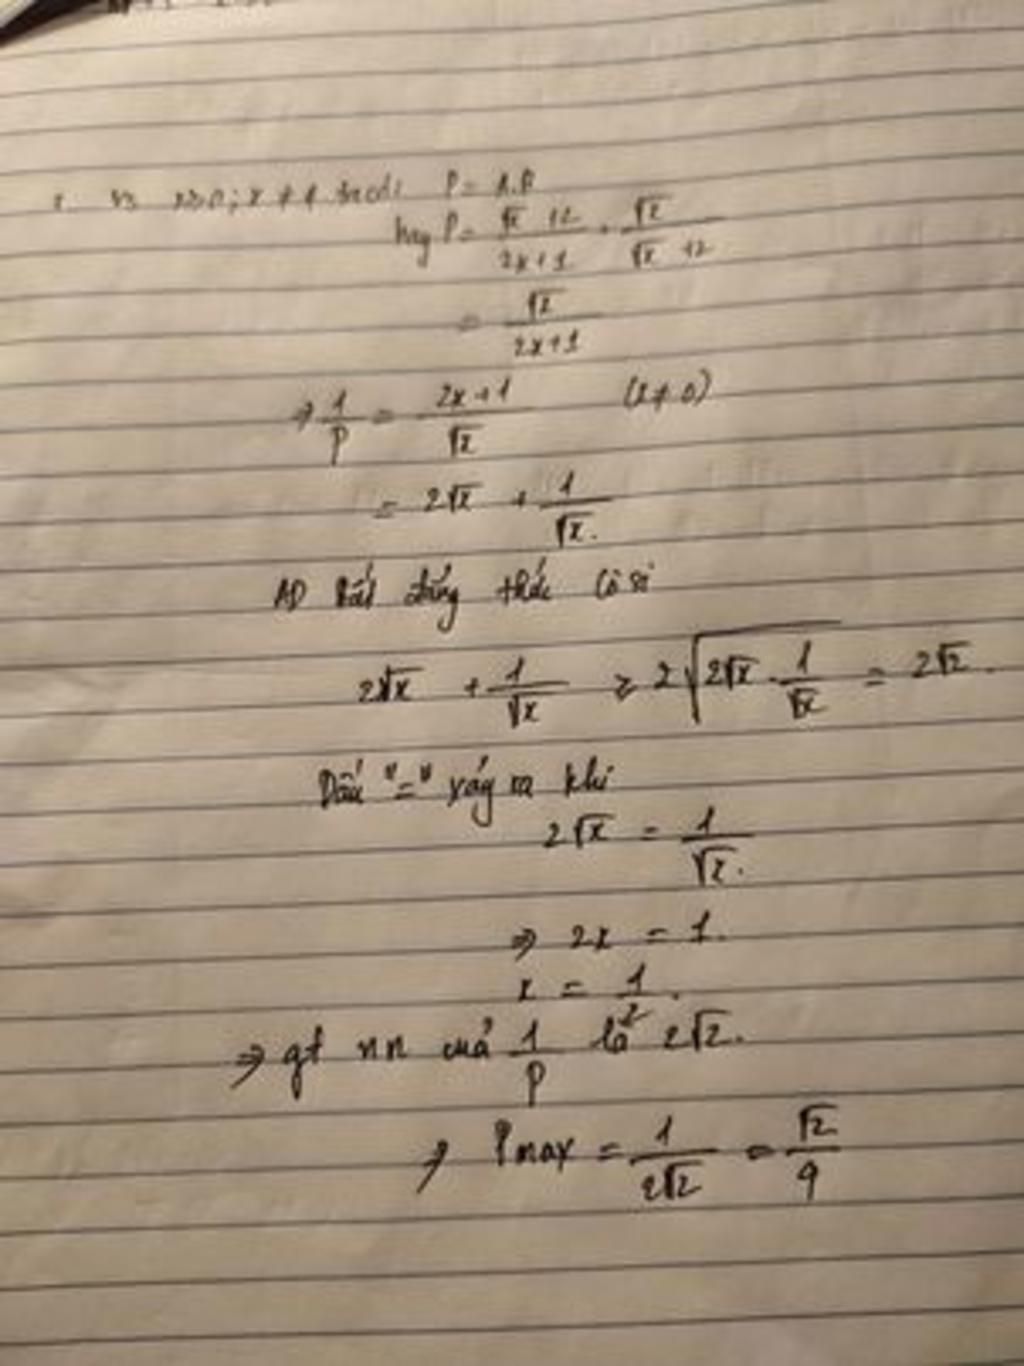 x ≠ 1 P = A.B
hay P = \frac{\sqrt{x} + 2}{2x+1} . \frac{\sqrt{x}}{\sqrt{x} + 2}
= \frac{\sqrt{x}}{2x+1}
⇒ \frac{1}{P} = \frac{2x+1}{\sqrt{x}} (x ≠ 0)
= 2\sqrt{x} + \frac{1}{\sqrt{x}}.
AD bất đẳng thức Cô si
2\sqrt{x} + \frac{1}{\sqrt{x}} ≥ 2\sqrt{2\sqrt{x} . \frac{1}{\sqrt{x}}} = 2\sqrt{2}.
Dấu "=" xảy ra khi
2\sqrt{x} = \frac{1}{\sqrt{x}}.
⇒ 2x = 1.
x = \frac{1}{2}.
⇒ gt nn của \frac{1}{P} là 2\sqrt{2}.
⇒ Pmax = \frac{1}{2\sqrt{2}} = \frac{\sqrt{2}}{4}